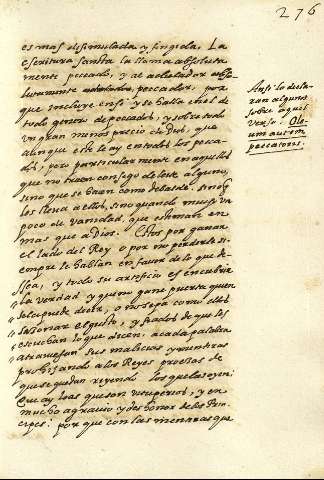 276
es mas disimulada y fingida. La
escritura sancta la llama absoluta
mente peccado, y al adulador abso
lutamente peccador, por
que incluye en si y se halla en el de
todo genero de peccados, y sobre todo
un gran menos precio de Dios, que
aunque este le ay en todos los pecca
dos, pero particularmente en aquellos
que no traen consigo deleite alguno,
sino que se haçen como debalde, sin q
los lleva a ellos, sino quando mucho un
poco de vanidad, que estiman en
mas que a Dios. Estos por ganar
el lado del Rey o por no perderle si
empre le hablan en favor de lo que de
sea, y todo su artificio es encubrir
la verdad y quien gane puerta quien
se la puede decir, o no sepa como ellos
sazonar el gusto, y fiados de que les
escuchan lo que dicen, a cada palabra
atraviesan sus malicias y mentiras
profetisando a los Reyes
que se quedan riyendo los que las oyen:
que ay loas que son vituperios, y en
mucho agravio y deshonor de los Prin
cipes: por que con las mentiras que
Ansi lo decla
ran algunos
sobre aquel
verso: Ole
um autem
peccatoris.